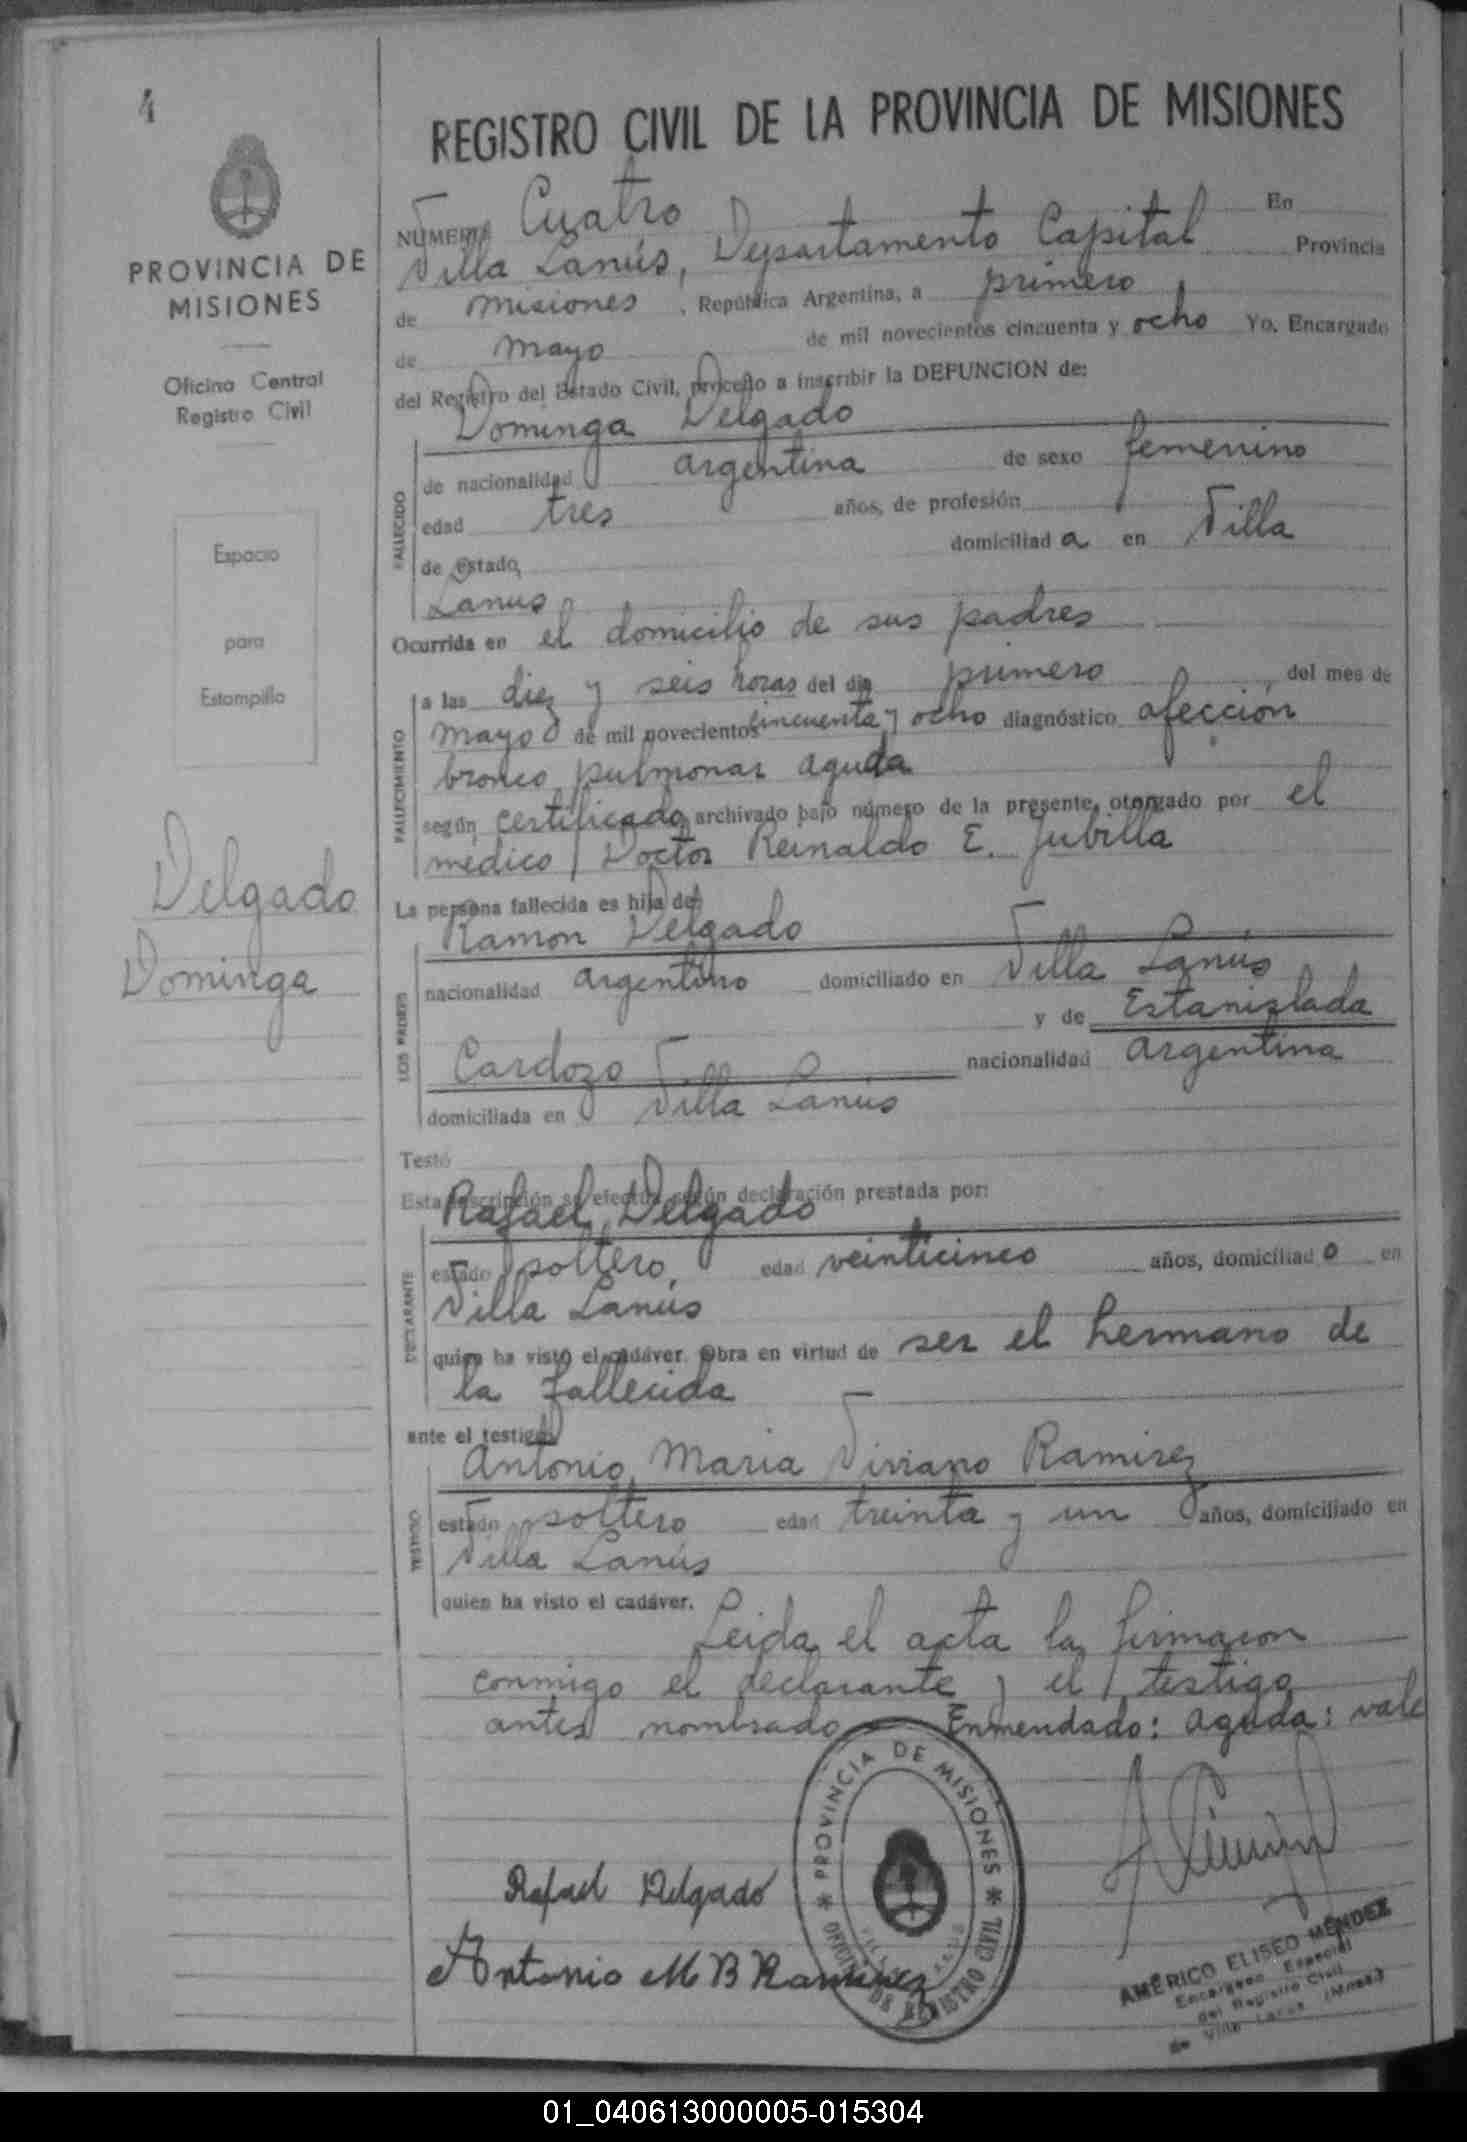 4
REGISTRO CIVIL DE LA PROVINCIA DE MISIONES
PROVINCIA DE
MISIONES
Oficina Central
Registro Civil
Espacio
para
Estampilla
Delgado
Dominga
NUMERO Cuatro En
Villa Lanús, Departamento Capital Provincia
de Misiones, República Argentina, a primero
de Mayo de mil novecientos cincuenta y ocho Yo, Encargado
del Registro del Estado Civil, procedo a inscribir la DEFUNCION de:
Dominga Delgado
FALLECIDO
de nacionalidad argentina de sexo femenino
edad tres años, de profesión
de estado domiciliada en Villa
Lanus
Ocurrida en el domicilio de sus padres
FALLECIMIENTO
a las diez y seis horas del día primero, del mes de
Mayo de mil novecientos cincuenta y ocho diagnóstico afección
bronco pulmonar aguda
según certificado archivado bajo número de la presente, otorgado por el
médico Doctor Reinaldo E. Jubilla
La persona fallecida es hija de:
LOS PADRES
Ramon Delgado
nacionalidad argentino domiciliado en Villa Lanús
y de Estanislada
Cardozo nacionalidad argentina
domiciliada en Villa Lanús
Testó
Esta inscripción se efectúa según declaración prestada por:
DECLARANTE
Rafael Delgado
estado soltero, edad veinticinco años, domiciliado en
Villa Lanús
quien ha visto el cadáver. Obra en virtud de ser el hermano de
la fallecida
ante el testigo
TESTIGO
Antonio Maria Viviano Ramirez
estado soltero edad treinta y un años, domiciliado en
Villa Lanús
quien ha visto el cadáver.
Leida el acta la firmaron
conmigo el declarante y el testigo
antes nombrado Enmendado: aguda: vale
PROVINCIA DE MISIONES
OFICINA DE REGISTRO CIVIL
Rafael Delgado
Antonio M B Ramirez
AMÉRICO ELISEO MÉNDEZ
Encargado Especial
del Registro Civil
de Villa Lanus (Mnes.)
01_040613000005-015304